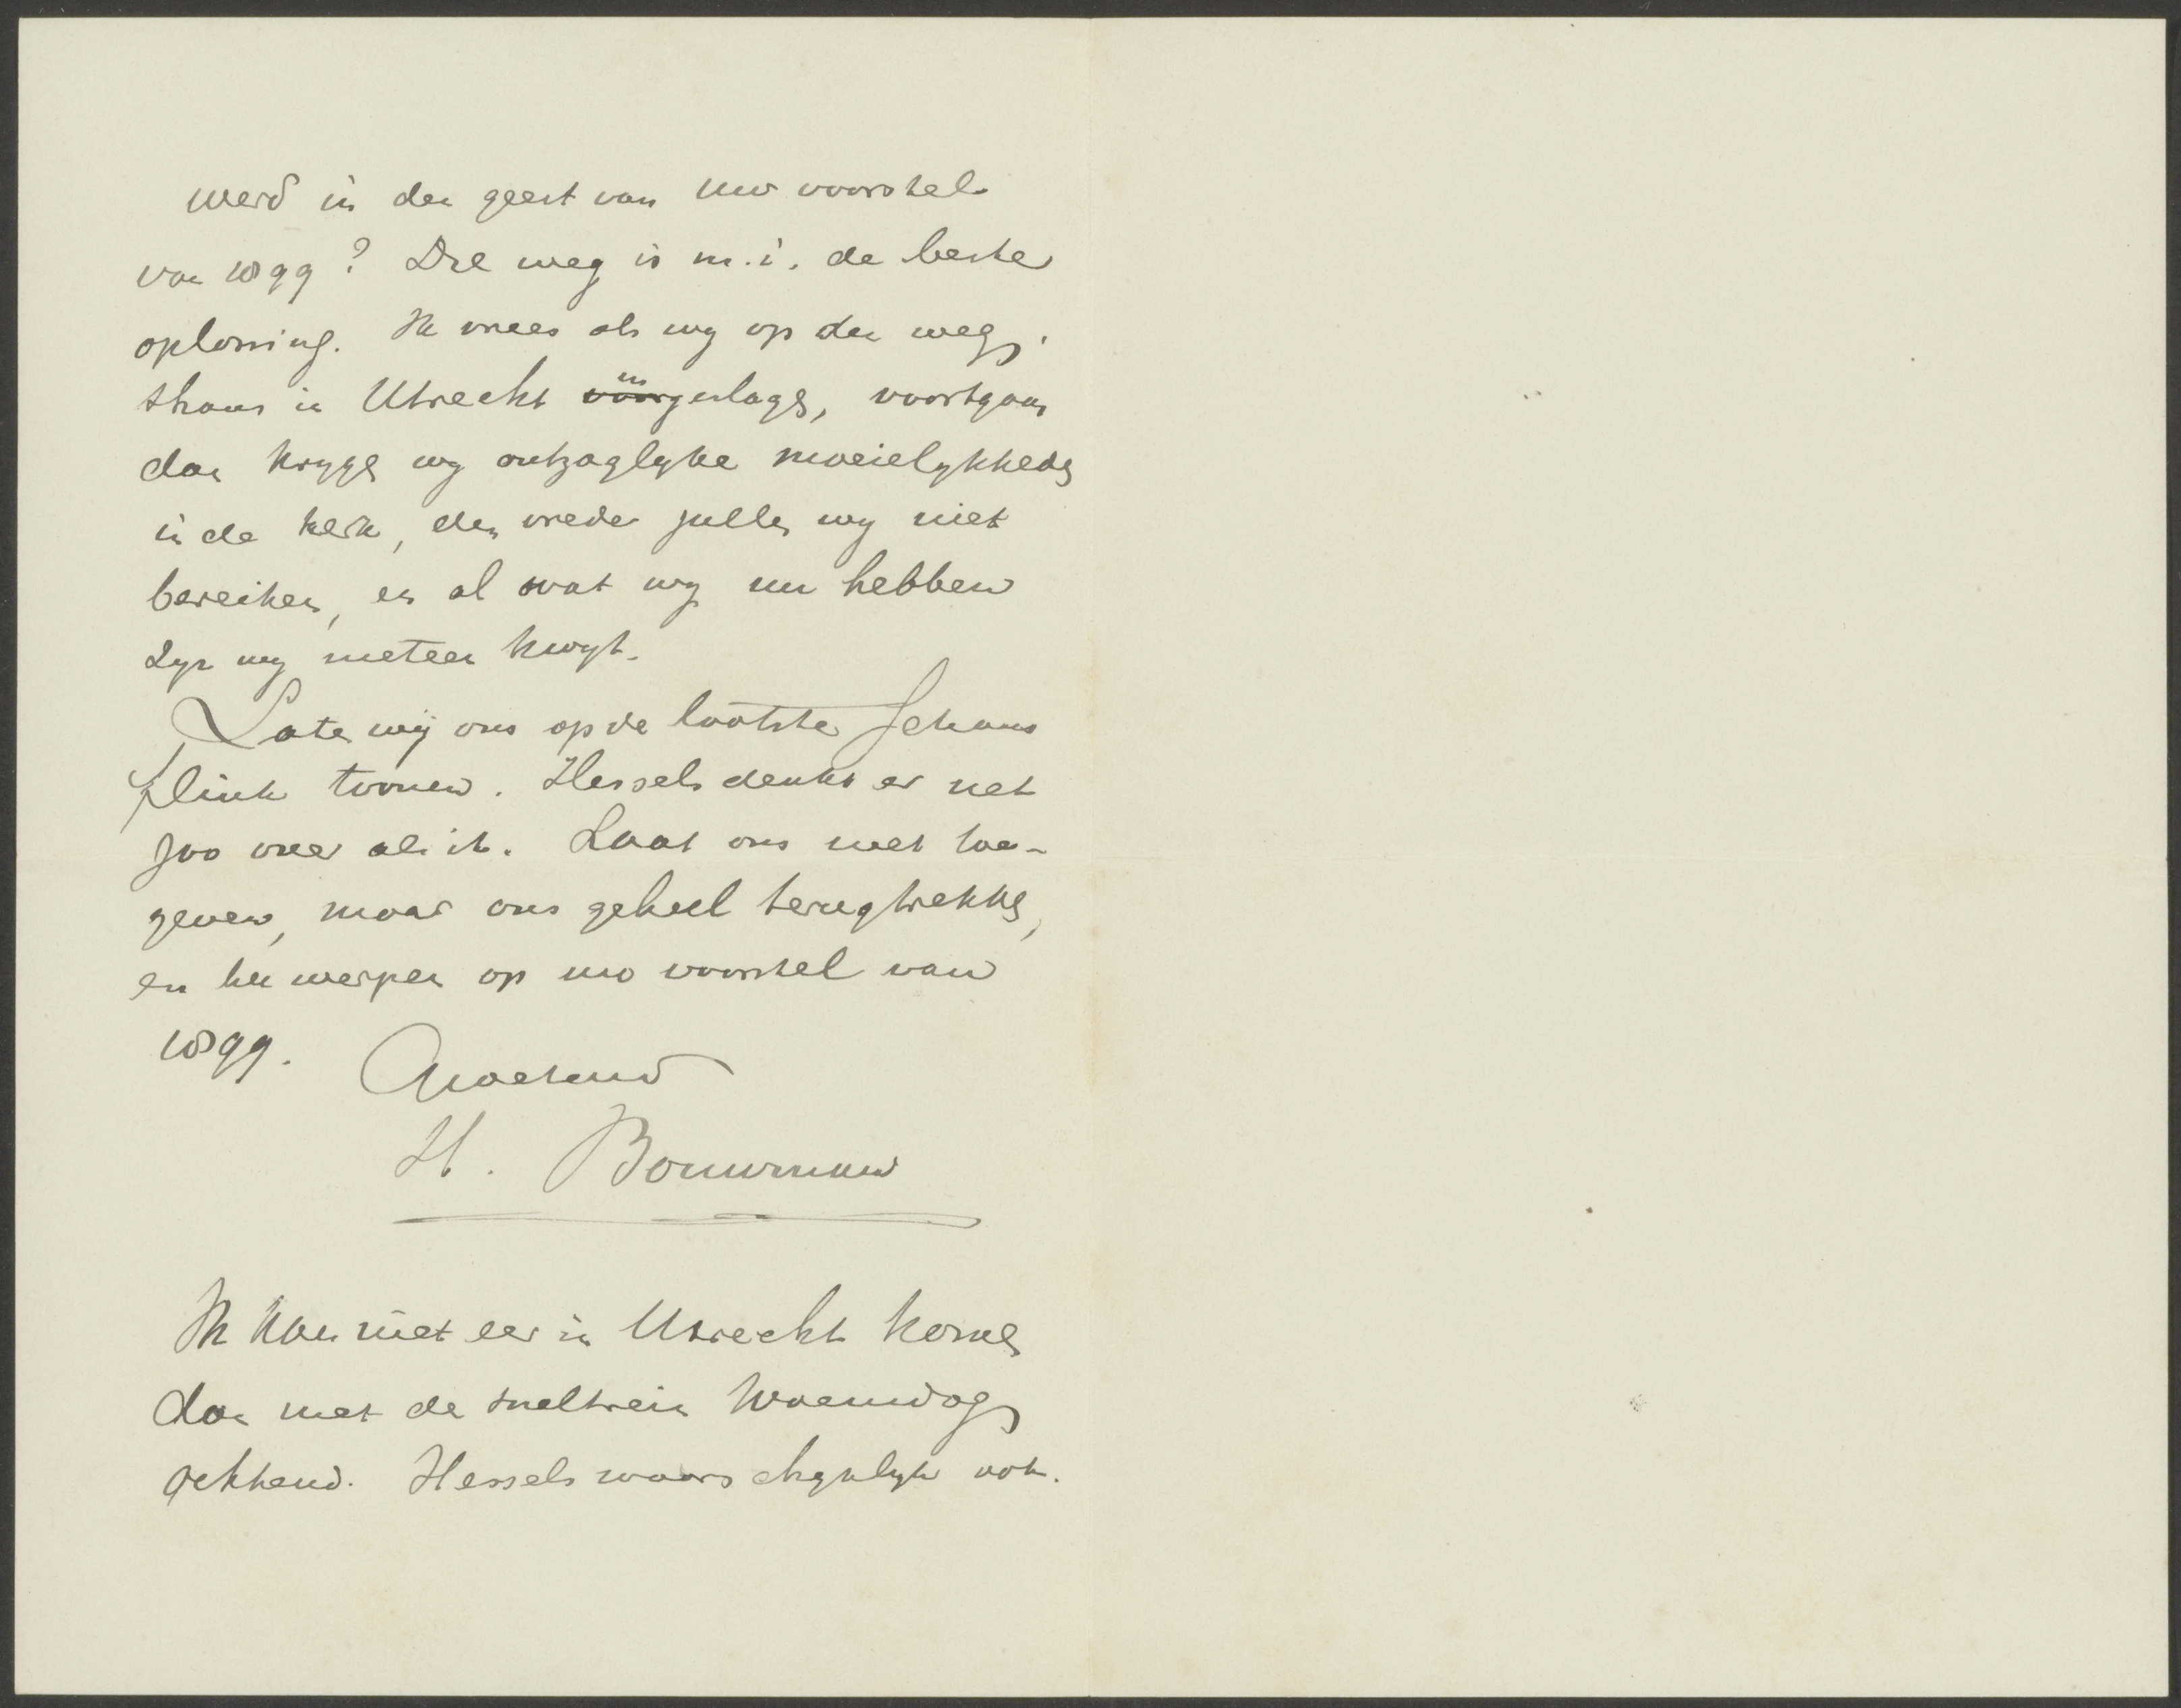 werd in den geest van uw voorstel
van 1899? Die weg is m.i. de beste
oplossing. Ik vrees als wy op den weg,
thans in Utrecht ingeslagen, voortgaan
dan krygen wy ontzaglyke moeielykheden
in de kerk, den vrede zullen wy niet
bereiken, en al wat wy nu hebben
zyn wy meteen kwyt.
Laten wij ons op de laatste schans
flink toonen. Hessels denkt er net
zoo over als ik. Laat ons niet toe-
geven, maar ons geheel terugtrekken,
en hen werpen op uw voorstel van
1899.
Groetend
H. Bouwman
Ik kan niet eer in Utrecht komen
dan met de sneltrein Woensdag
ochtend. Hessels waarschynlyk ook.